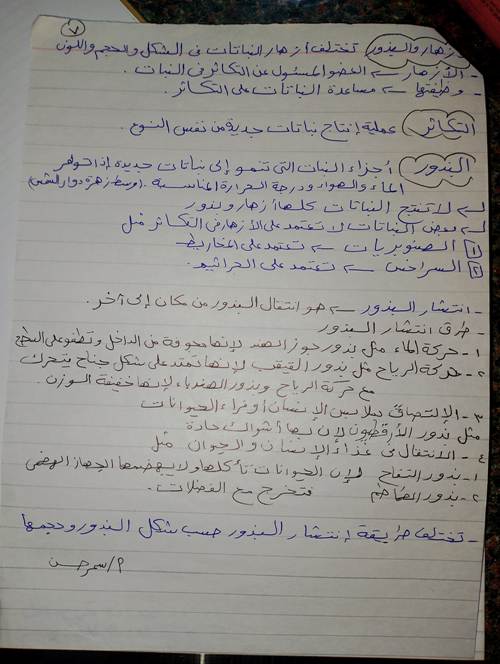 ٧
الأزهار والبذور تختلف أزهار النباتات فى الشكل والحجم واللون
- الأزهار ← العضو المسئول عن التكاثر فى النبات.
- وظيفتها ← مساعدة النباتات على التكاثر.
التكاثر عملية إنتاج نباتات جديدة من نفس النوع.
البذور أجزاء النبات التى تنمو إلى نباتات جديدة إذا توافر
الماء والهواء ودرجة الحرارة المناسبة. (وسط زهرة دوار الشمس)
← لا تنتج النباتات كلها أزهار وبذور
← بعض النباتات لا تعتمد على الأزهار فى التكاثر مثل
١ الصنوبريات ← تعتمد على المخاريط
٢ السراخس ← تعتمد على الجراثيم.
- انتشار البذور ← هو انتقال البذور من مكان إلى آخر.
- طرق انتشار البذور
١- حركة الماء مثل بذور جوز الهند لإنها مجوفة من الداخل وتطفو على السطح
٢- حركة الرياح مثل بذور القيقب لإنها تمتد على شكل جناح يتحرك
مع حركة الرياح وبذور الهندباء لإنها خفيفة الوزن.
٣- الإلتصاق بملابس الإنسان أو فراء الحيوانات
مثل بذور الأرقطيون لإن لها أشواك حادة
٤- الانتقال فى غذاء الإنسان والحيوان مثل
١- بذور التفاح لإن الحيوانات تأكلها ولا يهضمها الجهاز الهضمى
٢- بذور الطماطم فتخرج مع الفضلات.
- تختلف طريقة إنتشار البذور حسب شكل البذور وحجمها
أ/ سمر حسن